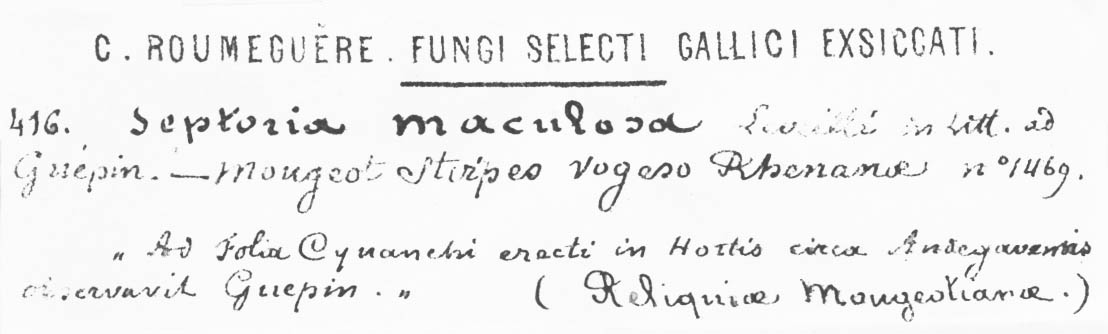 C. ROUMEGUÈRE. FUNGI SELECTI GALLICI EXSICCATI.
416. Septoria maculosa Leveillé in Litt. ad
Guépin. — Mougeot Stirpes Vogeso Rhenanæ nº 1469.
„ Ad Folia Cynanchi erecti in Hortis circa Andegavensis
observavit Guepin. „ ( Reliquiæ Mougeotianæ. )